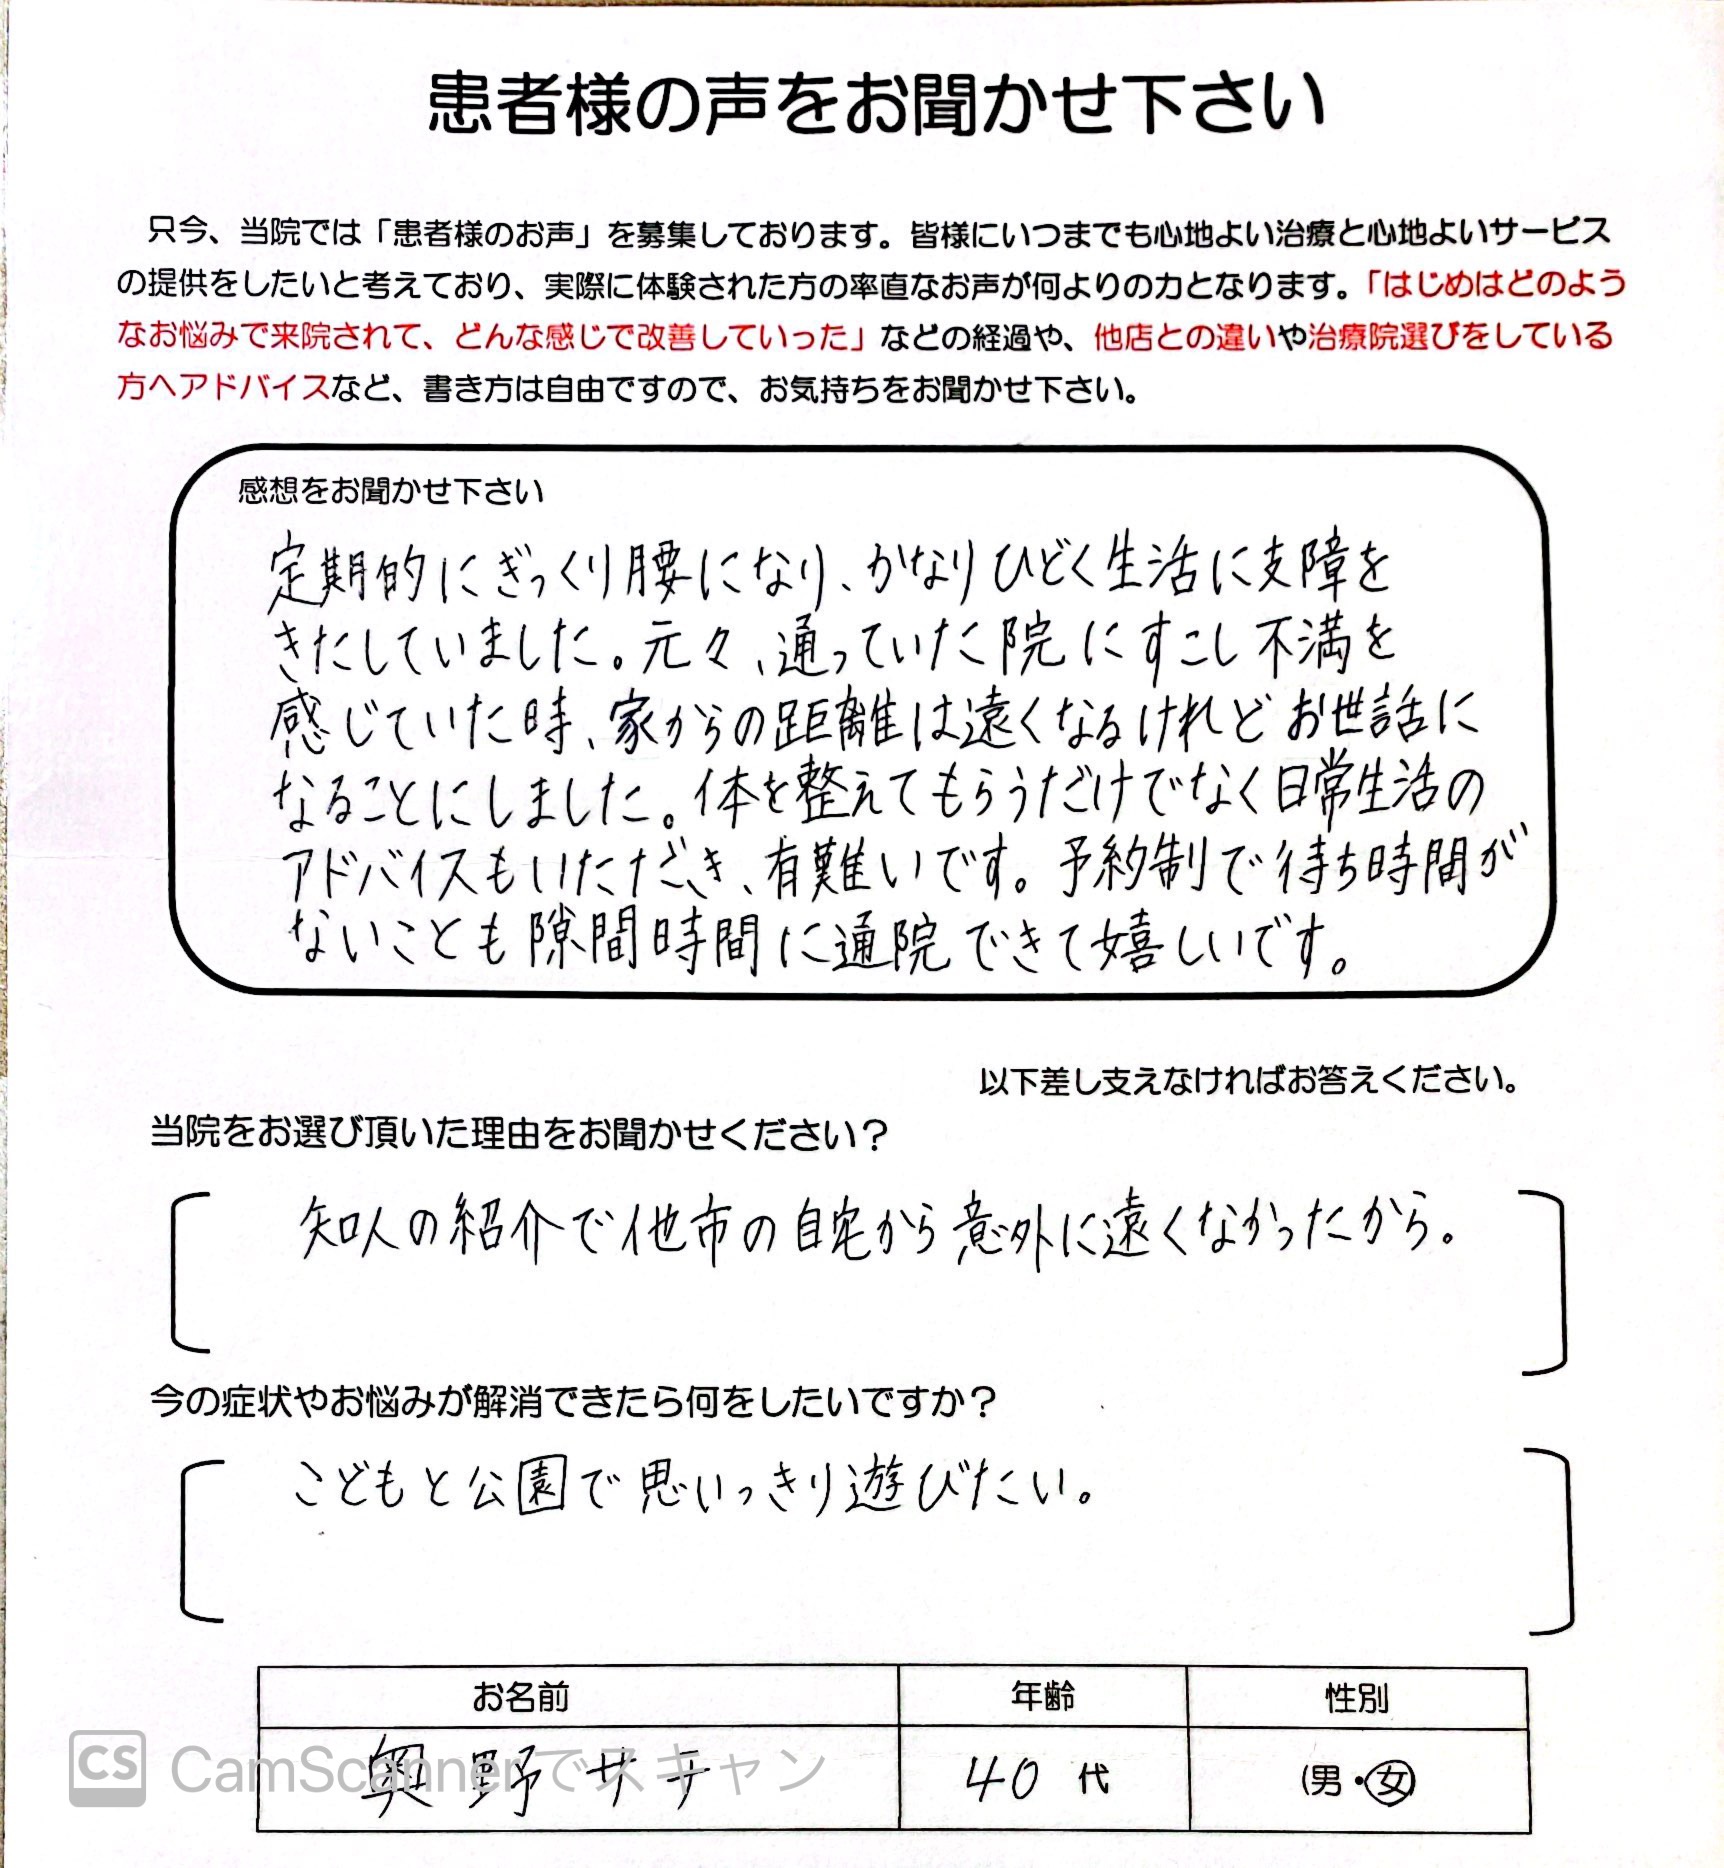 患者様の声をお聞かせ下さい
只今、当院では「患者様のお声」を募集しております。皆様にいつまでも心地よい治療と心地よいサービス
の提供をしたいと考えており、実際に体験された方の率直なお声が何よりの力となります。「はじめはどのよう
なお悩みで来院されて、どんな感じで改善していった」などの経過や、他店との違いや治療院選びをしている
方へアドバイスなど、書き方は自由ですので、お気持ちをお聞かせ下さい。
感想をお聞かせ下さい
定期的にぎっくり腰になり、かなりひどく生活に支障を
きたしていました。元々、通っていた院にすこし不満を
感じていた時、家からの距離は遠くなるけれどお世話に
なることにしました。体を整えてもらうだけでなく日常生活の
アドバイスもいただき、有難いです。予約制で待ち時間が
ないことも隙間時間に通院できて嬉しいです。
以下差し支えなければお答えください。
当院をお選び頂いた理由をお聞かせください？
知人の紹介で他市の自宅から意外に遠くなかったから。
今の症状やお悩みが解消できたら何をしたいですか？
こどもと公園で思いっきり遊びたい。
お名前 年齢 性別
奥野サチ 40代 (男・女)
CS CamScannerでスキャン